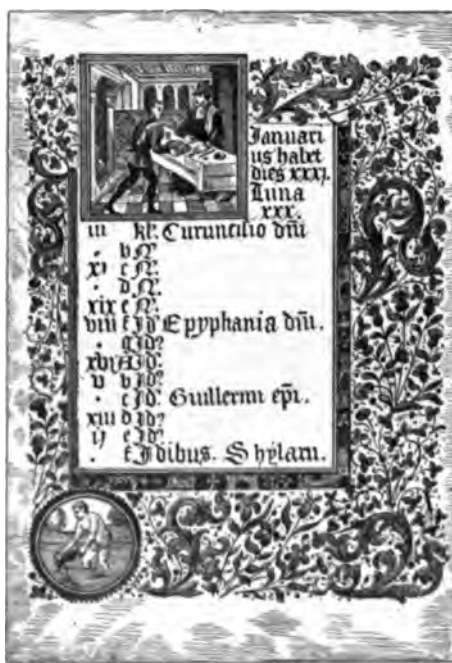 Januari
us habet
dies xxxj.
Luna
xxx.
iij kl'. Circuncisio dñi
. b N'
xj c N'.
. d N'.
xix e N'.
viij f Jd' Epyphania dñi.
. g Jd'
xvj A Jd'.
v b Jd'
. c Jd' Guillermi ep̄i.
xiij d Jd'
ij e Jd'
. f Jdibus. S hylarii.